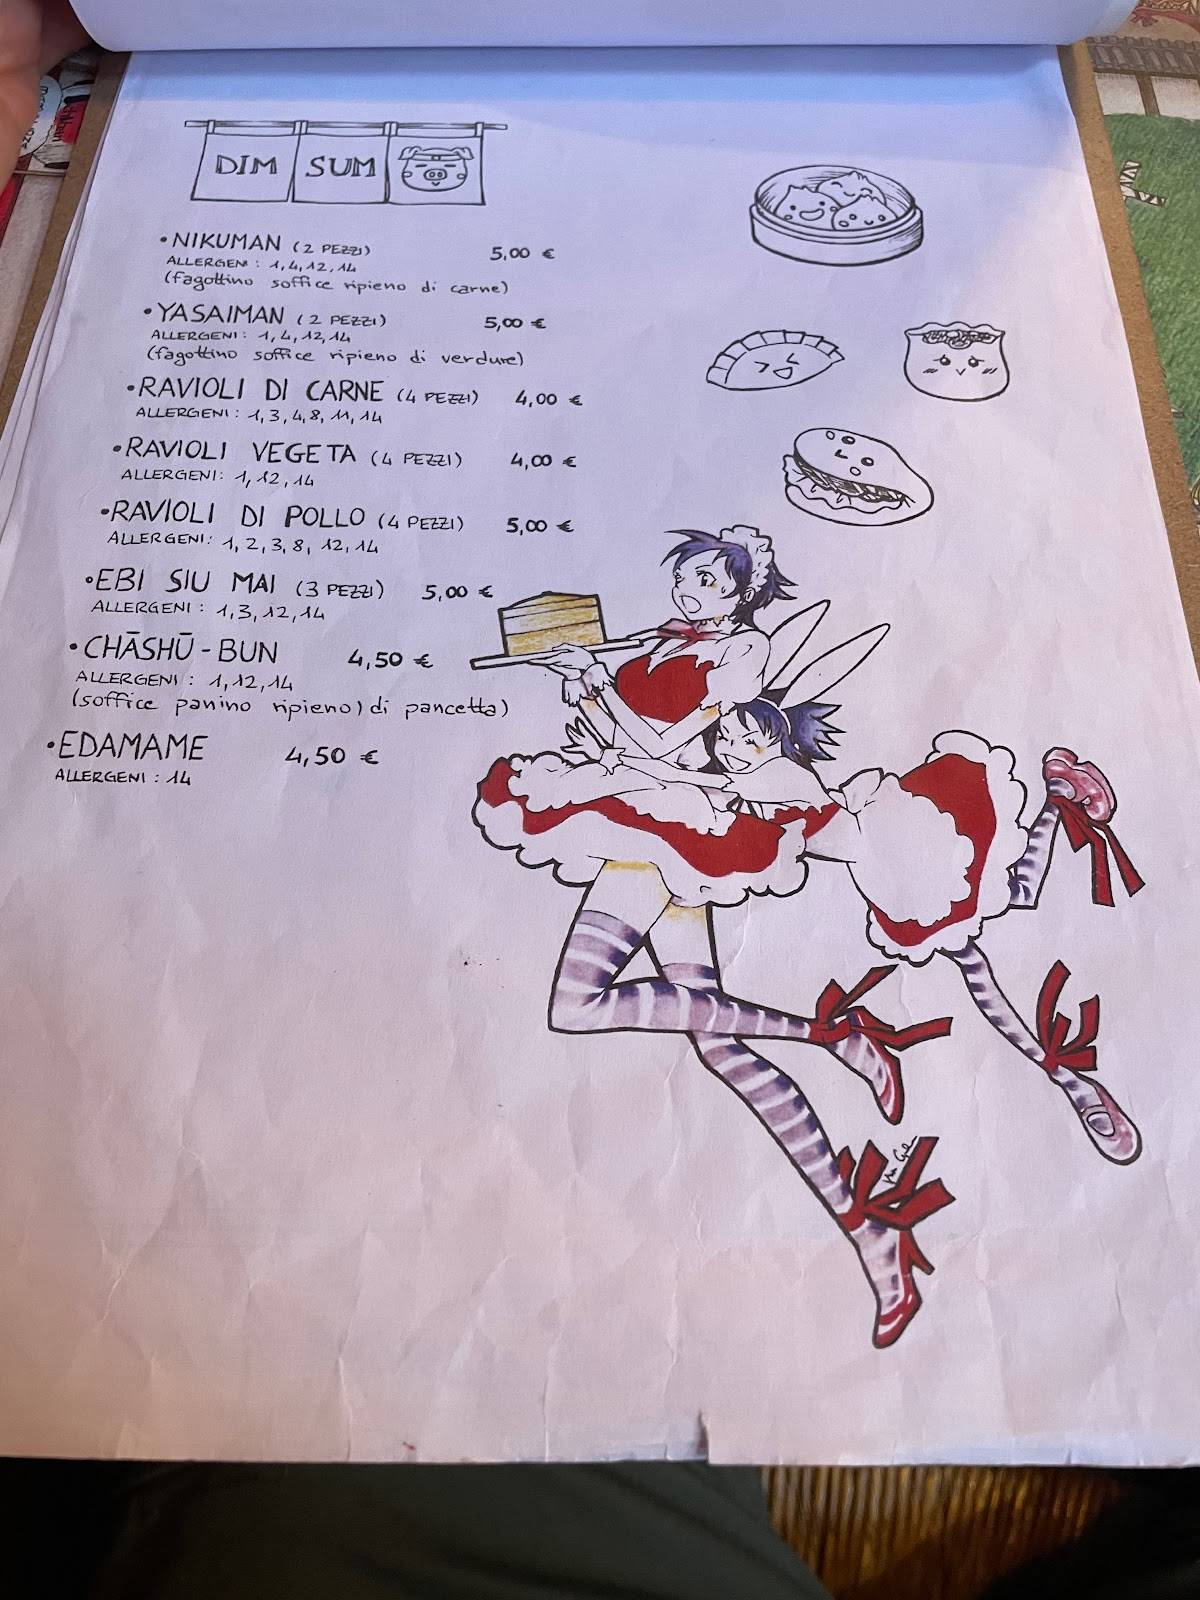 DIM SUM
• NIKUMAN (2 PEZZI) 5,00 €
ALLERGENI : 1, 4, 12, 14
(fagottino soffice ripieno di carne)
• YASAIMAN (2 PEZZI) 5,00 €
ALLERGENI : 1, 4, 12, 14
(fagottino soffice ripieno di verdure)
• RAVIOLI DI CARNE (4 PEZZI) 4,00 €
ALLERGENI : 1, 3, 4, 8, 11, 14
• RAVIOLI VEGETA (4 PEZZI) 4,00 €
ALLERGENI : 1, 12, 14
• RAVIOLI DI POLLO (4 PEZZI) 5,00 €
ALLERGENI : 1, 2, 3, 8, 12, 14
• EBI SIU MAI (3 PEZZI) 5,00 €
ALLERGENI : 1, 3, 12, 14
• CHĀSHŪ - BUN 4,50 €
ALLERGENI : 1, 12, 14
(soffice panino ripieno) di pancetta)
• EDAMAME 4,50 €
ALLERGENI : 14